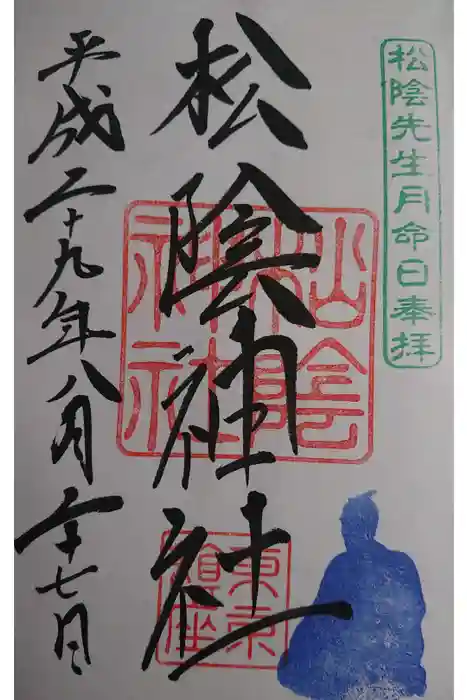 松陰先生月命日奉拝
松陰神社
松陰神社
東京鎮座
平成二十九年八月二十七日